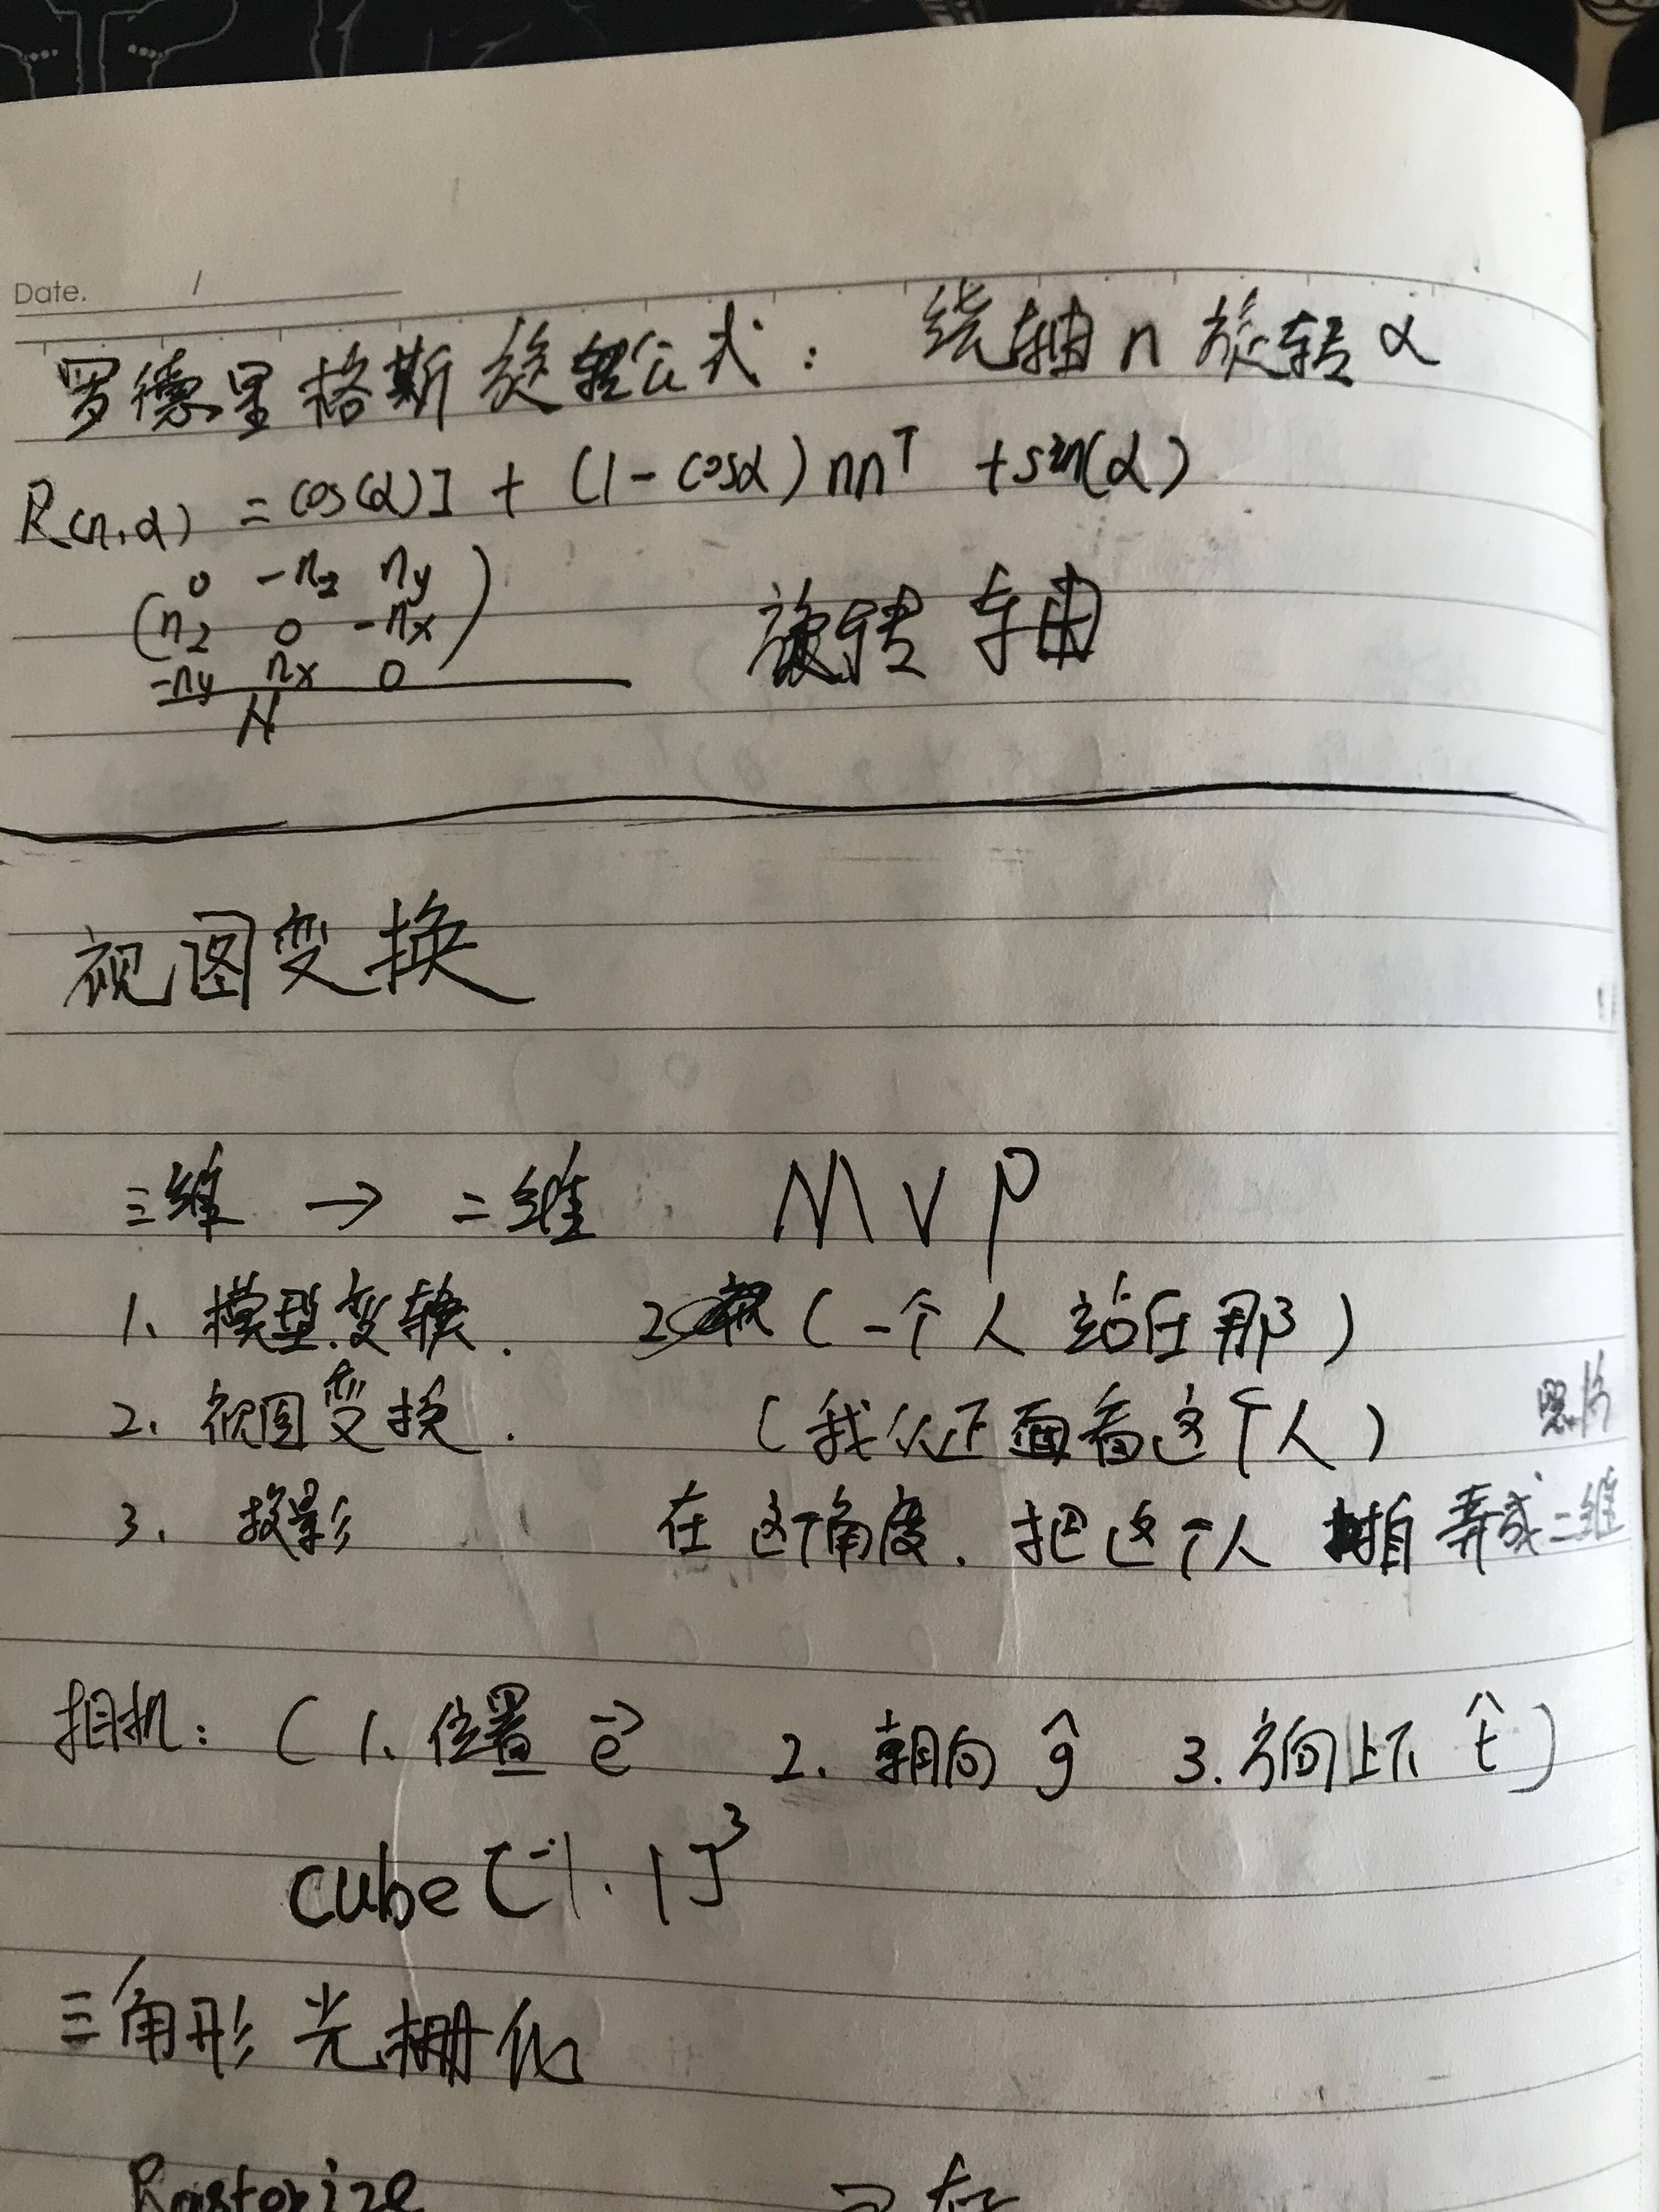 Date.
罗德里格斯旋转公式: 绕轴 n 旋转 α
R(n,α) = cos(α)I + (1-cosα)nnᵀ + sin(α)
0 -nz ny
(nz 0 -nx) 旋转轴
-ny nx 0
N
视图变换
三维 → 二维 MVP
1. 模型变换. (一个人站在那)
2. 视图变换. (我从正面看这个人)
3. 投影 在这个角度. 把这个人 弄成二维
相机: (1. 位置 e⃗ 2. 朝向 ĝ 3. 方向上下 t̂)
cube [-1.1]³
三角形光栅化
Rasterize